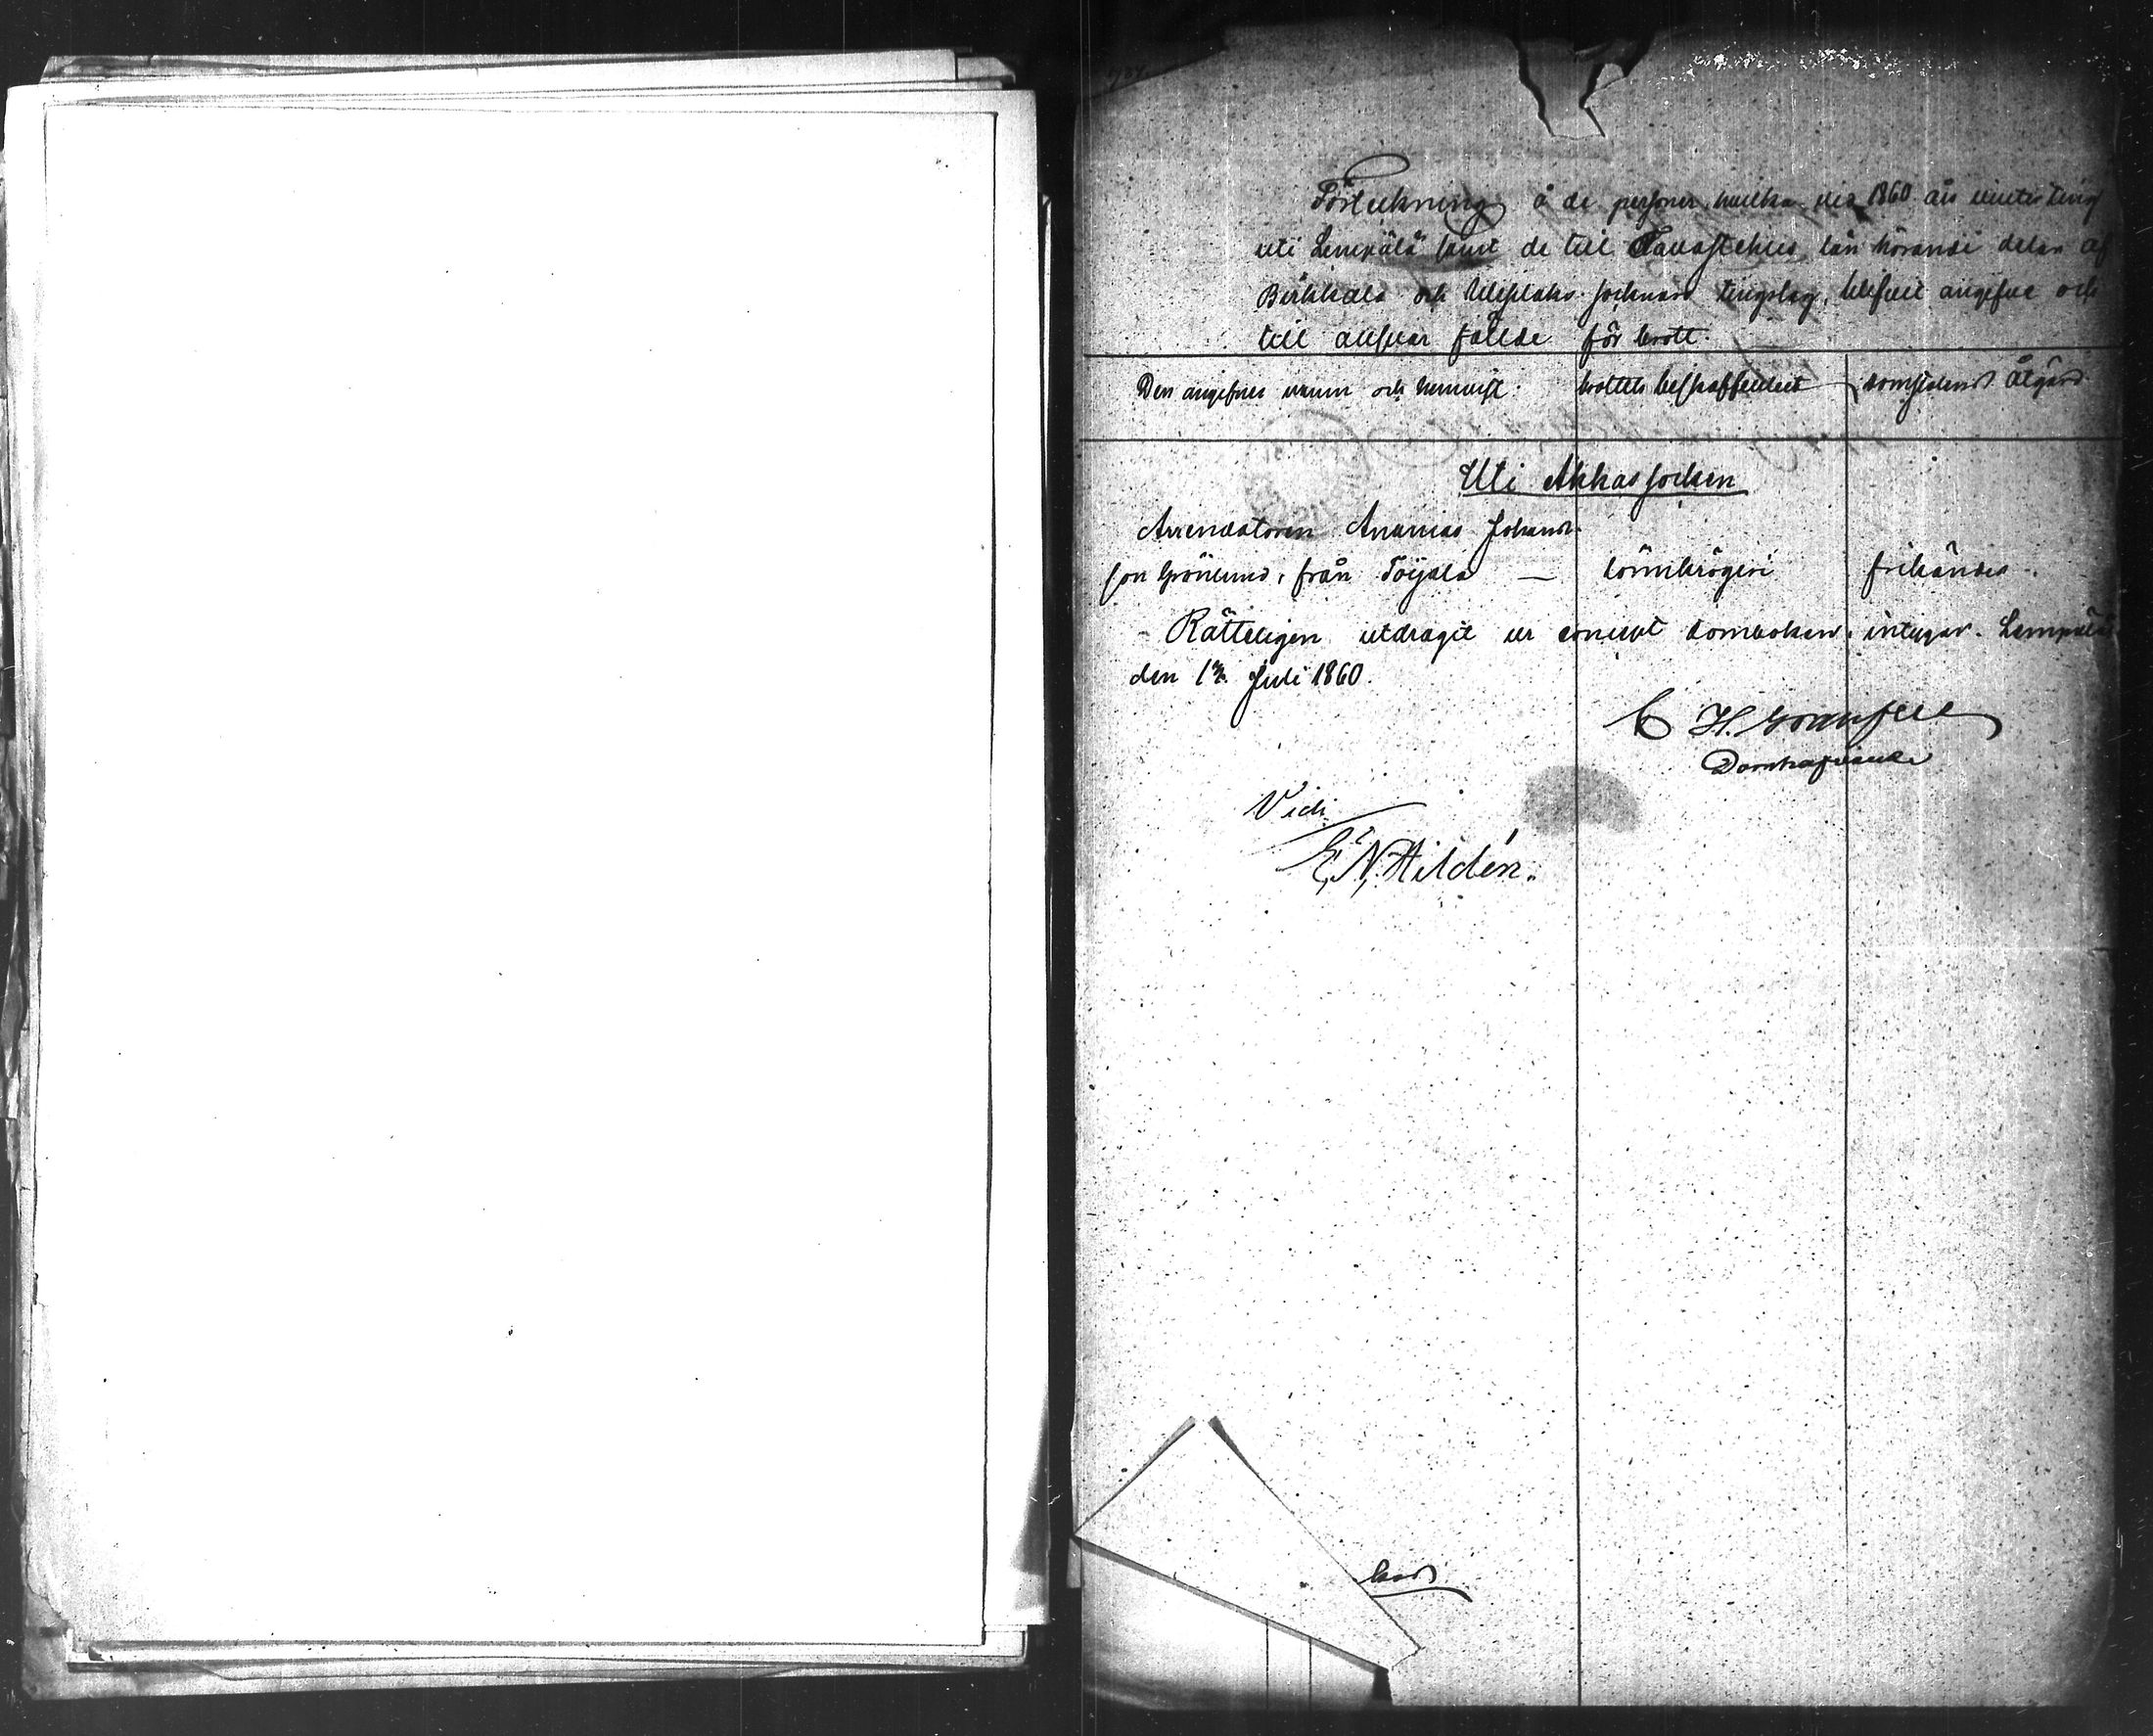 Förteckning å de personer, hwilka vid 1860 års winter ting
uti Lempälä samt de till Tavastehus län hörande delar af
Birkkala och Wesilaks socknars tingslag, blifvit angifne och
till answar fällde för brott.
Den angifnes namn och hemvist. brottets beskaffenhet domstolens åtgärd.
Uti Akkas socken
Arrendatoren Ananias Johans-
son Grönlund, från Toijala — lönnkrögeri frikändes.
Rätteligen utdragit ur concept domboken, intygar. Lempälä
den Juli 1860.
C H.
Domhafvande
Vidi
E, N, Hildén.